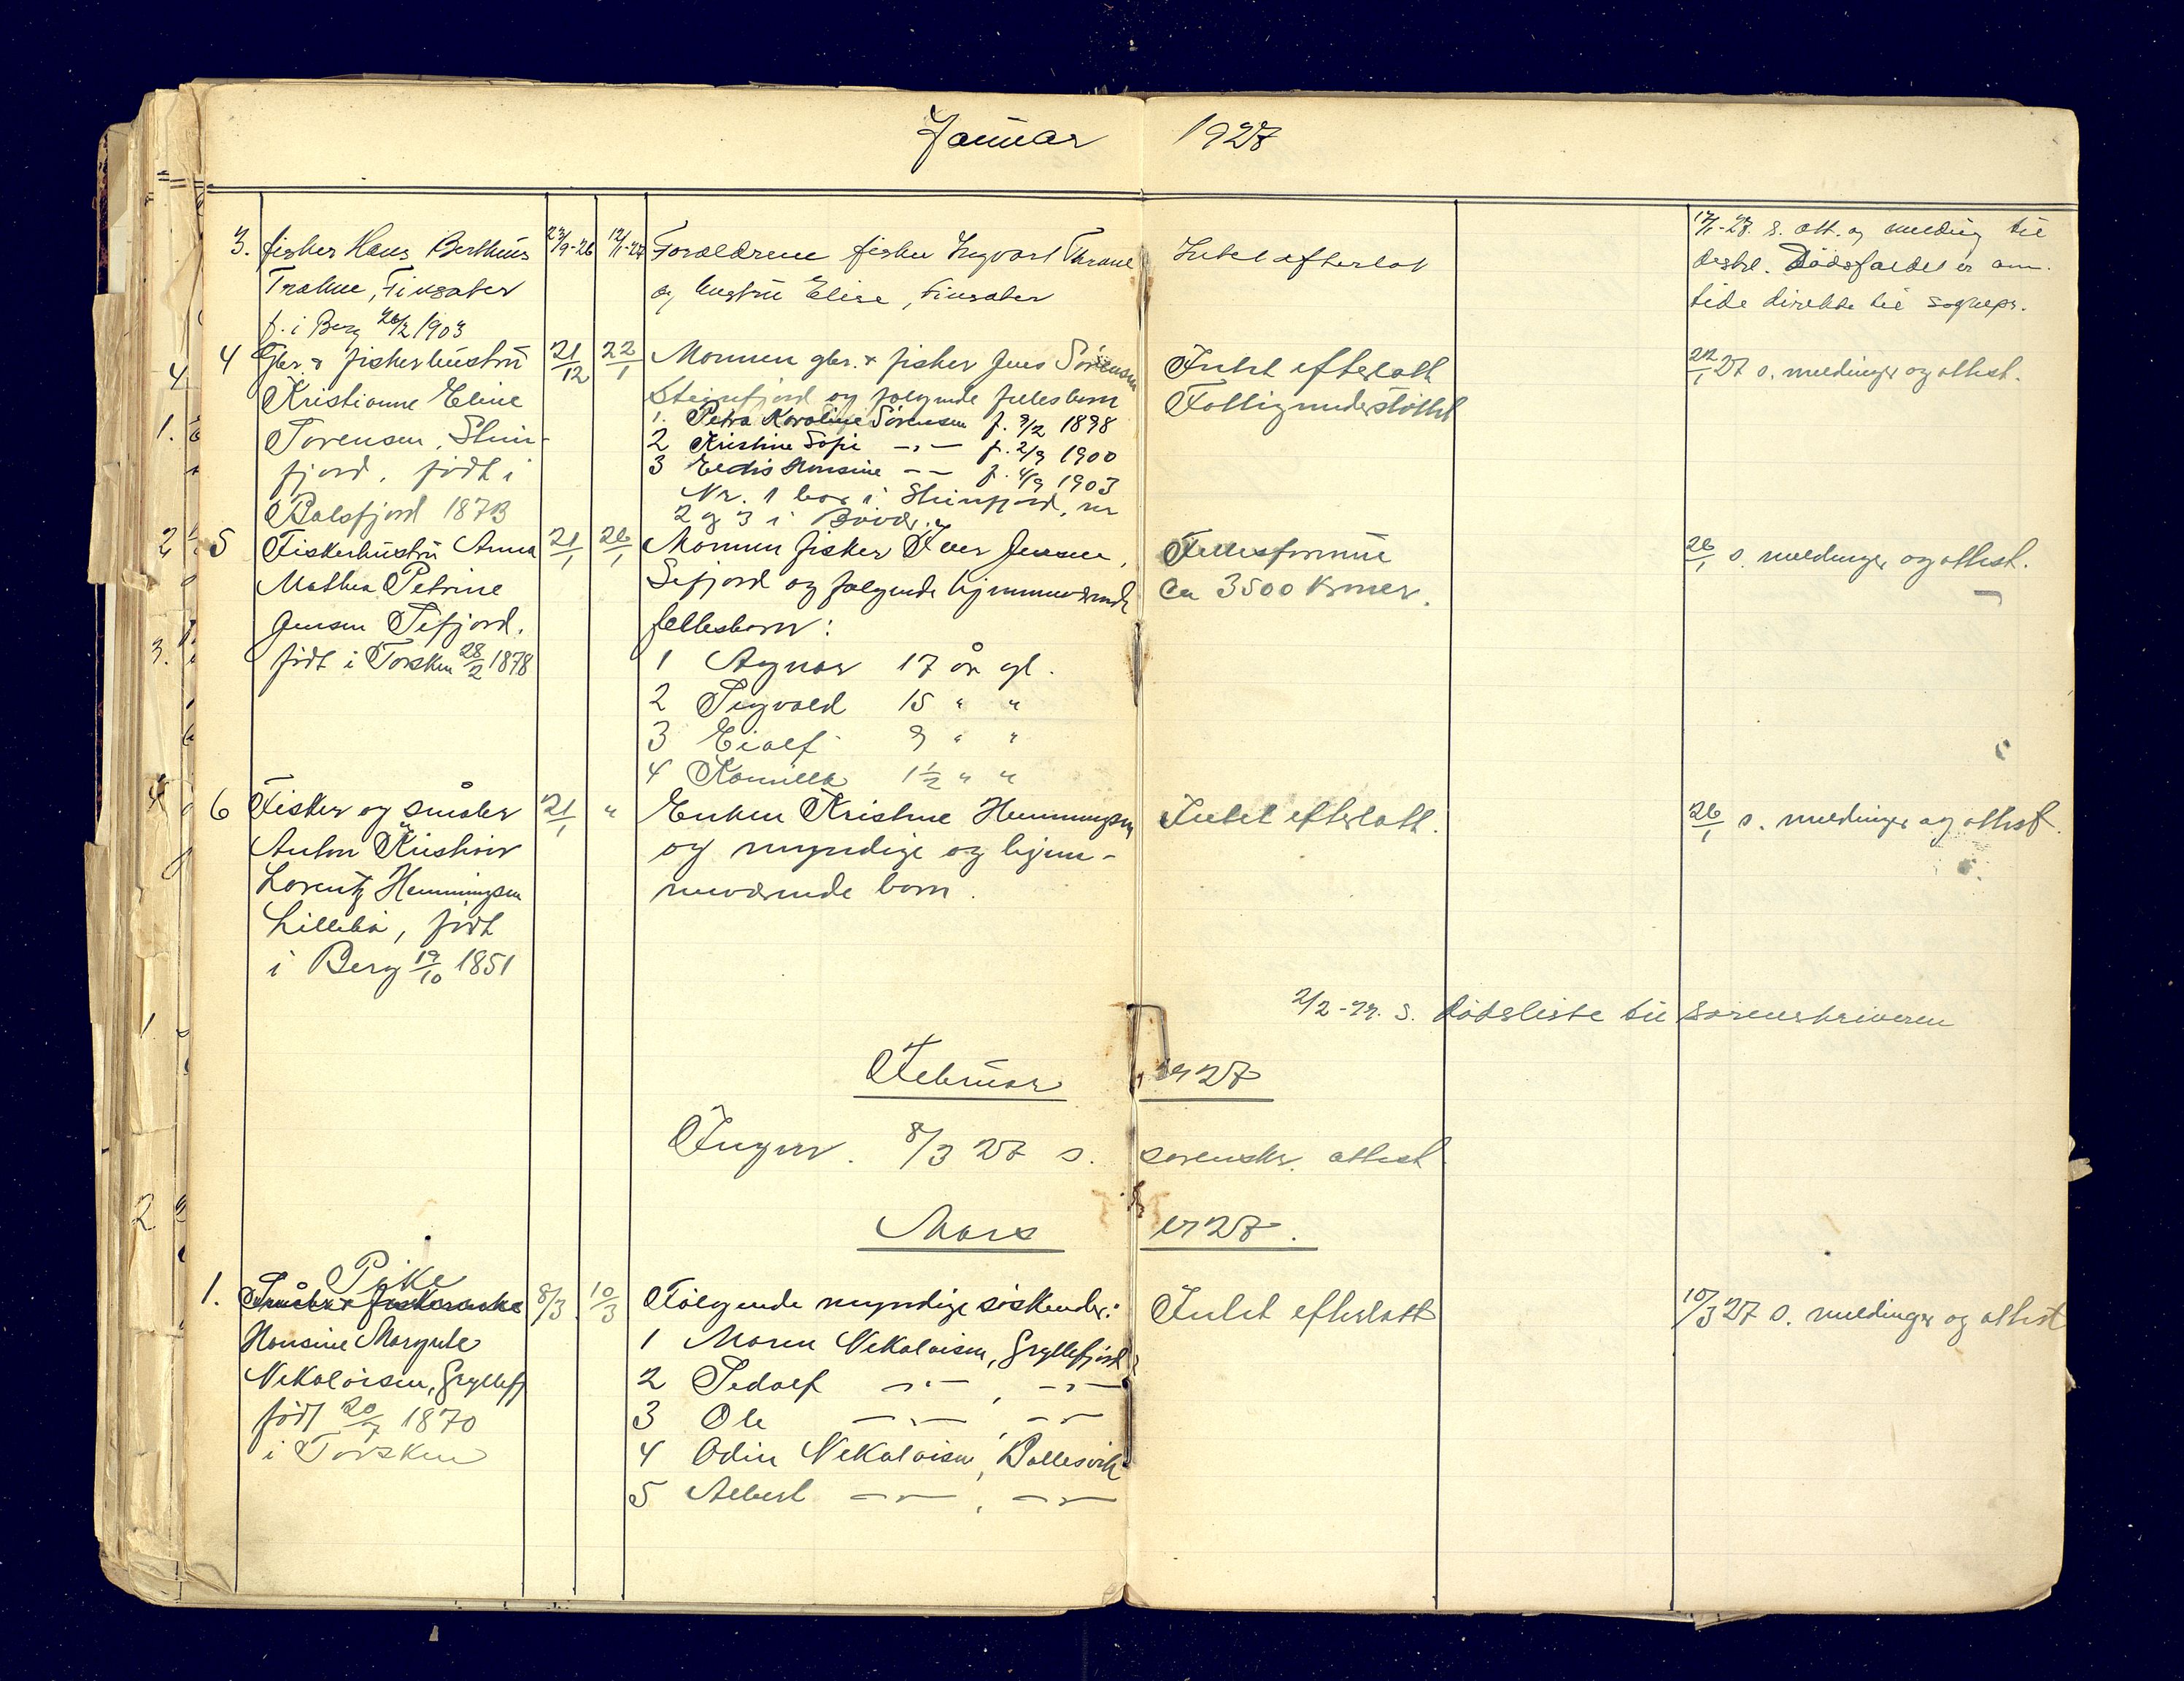 Januar 1927
3. fisker Hans Bertheus
Trahne, Finsæter
f. i Berg 26/2 1903
23/9-26
12/1-27
Forældrene fisker Ingvart Thrane
og hustru Elise, Finsæter
Intet efterlat
17/1-27. s. att. og melding til
distsl. Dødsfaldet er an-
tide direkte til sognepr.
4 Gbr. & fiskerhustru
Kristianne Eline
Sørensen, Stein-
fjord, født i
Balsfjord 1873
21/12
22/1
Mannen gbr. & fisker Jens Sørensen
Steinfjord og følgende fellesbarn
1. Petra Karoline Sørensen f. 9/2 1898
2 Kristine Sofie -"- f. 2/9 1900
3 Eldis Hansine -"- f. 4/9 1903
Nr. 1 bor i Steinfjord, nr
2 og 3 i Bøvær.
Intet efterlatt
Fattigunderstøttet
22/1 27 s. meldinger og attest.
5 Fiskerhustru Anna
Mathea Petrine
Jensen Sifjord,
født i Torsken 28/2 1878
21/1
26/1
Mannen fisker Iver Jensen,
Sifjord og følgende hjemmeværende
fellesbarn:
1 Agnar 17 år gl.
2 Sigvald 15 " "
3 Eialf 9 " "
4 Kamilla 1 1/2 " "
Fellesformue
ca 3500 kroner.
26/1 s. meldinger og attest.
6 Fisker og småbr
Anton Kristian
Lorentz Hemmingsen
Lillebø, født
i Berg 19/10 1851
21/1
"
Enken Kristine Hemmingsen
og myndige og hjem-
meværende barn.
Intet efterlatt.
26/1 s. meldinger og attest.
2/2-27. s. dødsliste til sorenskriveren
Februar 1927
Ingen. 8/3 27 s. sorenskr. attest
Mars 1927.
1. Pike
Småbr & fiskerenke
Hansine Margrete
Nekolaisen, Gryllefj
født 20/7 1870
i Torsken
8/3
10/3
Følgende myndige søskender:
1 Maren Nekolaisen, Gryllefjord
2 Pedolf -"-, -"-
3 Ole -"-, -"-
4 Odin Nekolaisen, Ballesvik
5 Albert -"-, -"-
Intet efterlatt
10/3 27 s. meldinger og attest